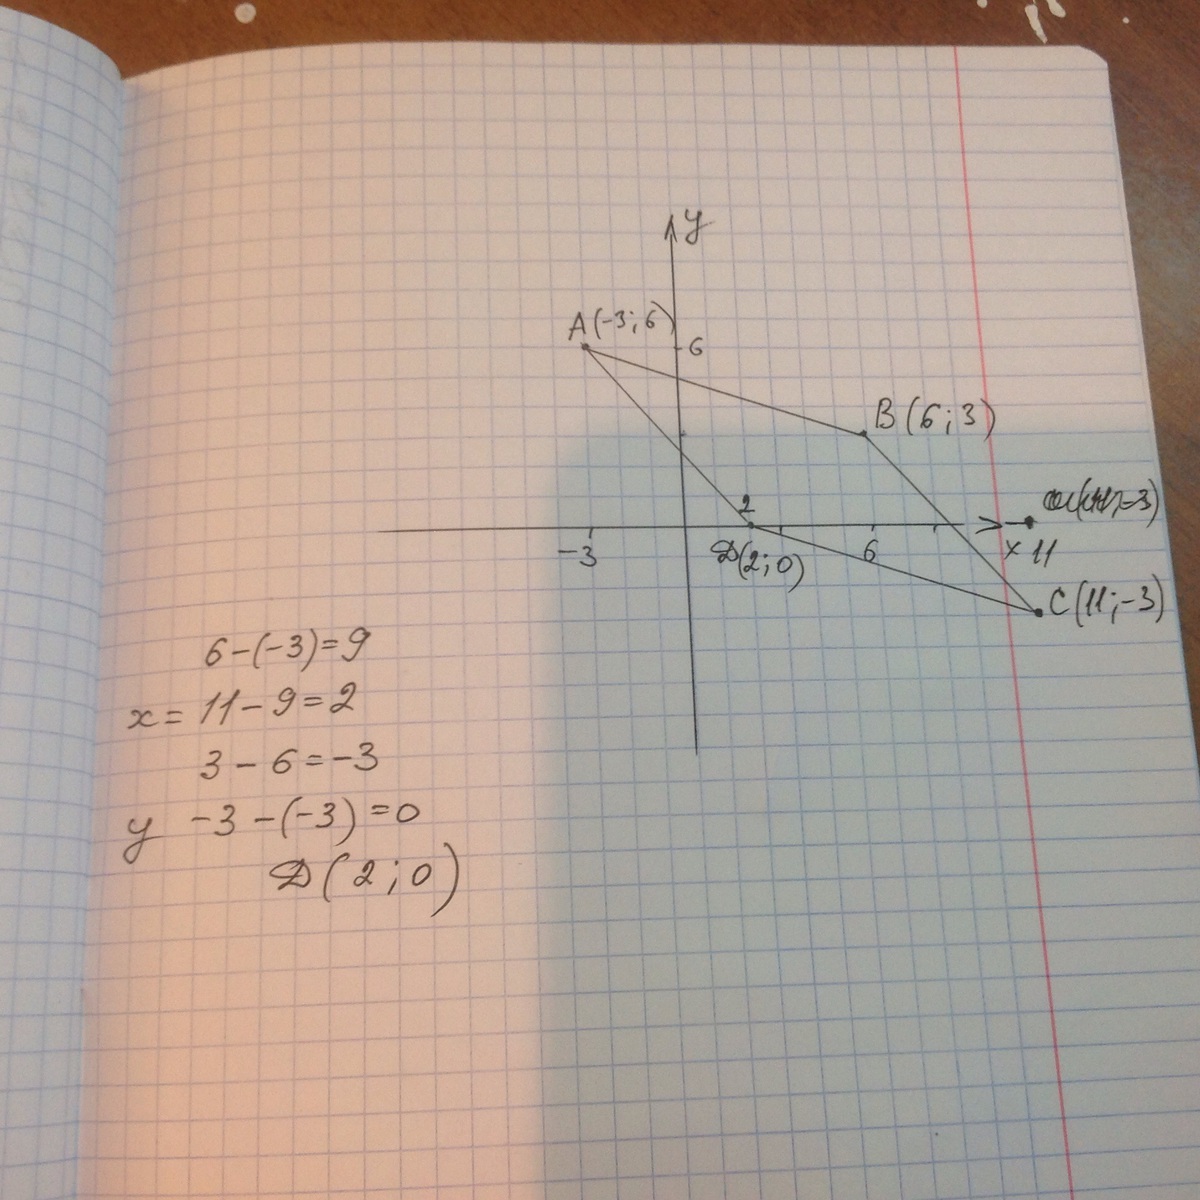 y
A(-3; 6)
6
B(6; 3)
2
-3
D(2; 0)
6
x 11
C(11; -3)
6-(-3)=9
x= 11-9=2
3-6=-3
y -3-(-3)=0
D(2; 0)